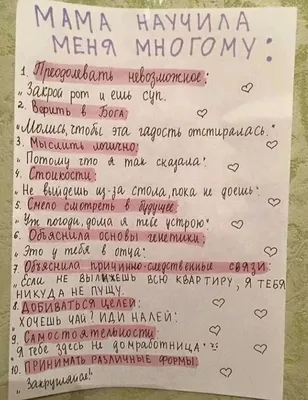 МАМА НАУЧИЛА
МЕНЯ МНОГОМУ:
1. Преодолевать невозможное:
„Закрой рот и ешь суп.
2. Верить в Бога
„Молись, чтобы эта гадость отстиралась."
3. Мыслить логично:
„Потому что я так сказала"
4. Стойкости:
„Не выйдешь из-за стола, пока не доешь"
5. Смело смотреть в будущее
„Уж погоди, дома я тебе устрою"
6. Объяснила основы генетики:
„Это у тебя в отца"
7 Объяснила причинно-следственные связи
„Если не вылижешь всю квартиру, я тебя
никуда не пущу.
8. Добиваться целей:
Хочешь чай? Иди налей:
9. Самостоятельности:
Я тебе здесь не домработница"
10. Принимать различные формы:
„Закрушалае!"